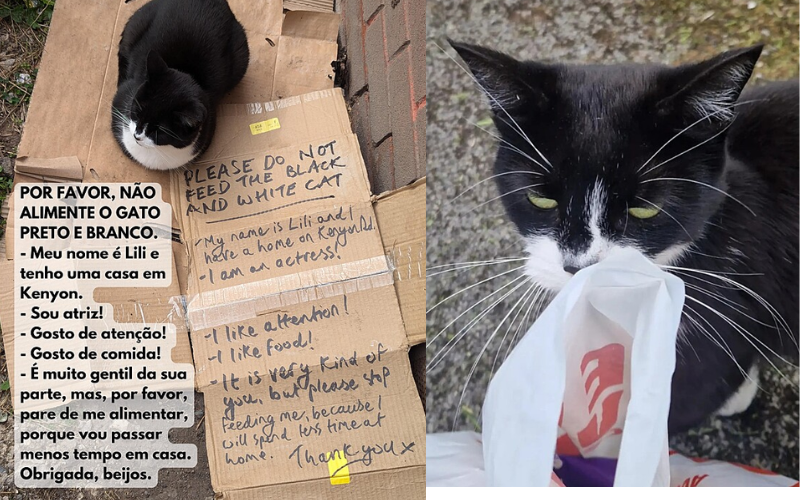 PLEASE DO NOT
FEED THE BLACK
AND WHITE CAT
- My name is Lili and I
have a home on Kenyon Rd.
- I am an actress!
- I like attention!
- I like food!
- It is very kind of
you, but please stop
feeding me, because I
will spend less time at
home. Thank you x
POR FAVOR, NÃO
ALIMENTE O GATO
PRETO E BRANCO.
- Meu nome é Lili e
tenho uma casa em
Kenyon.
- Sou atriz!
- Gosto de atenção!
- Gosto de comida!
- É muito gentil da sua
parte, mas, por favor,
pare de me alimentar,
porque vou passar
menos tempo em casa.
Obrigada, beijos.